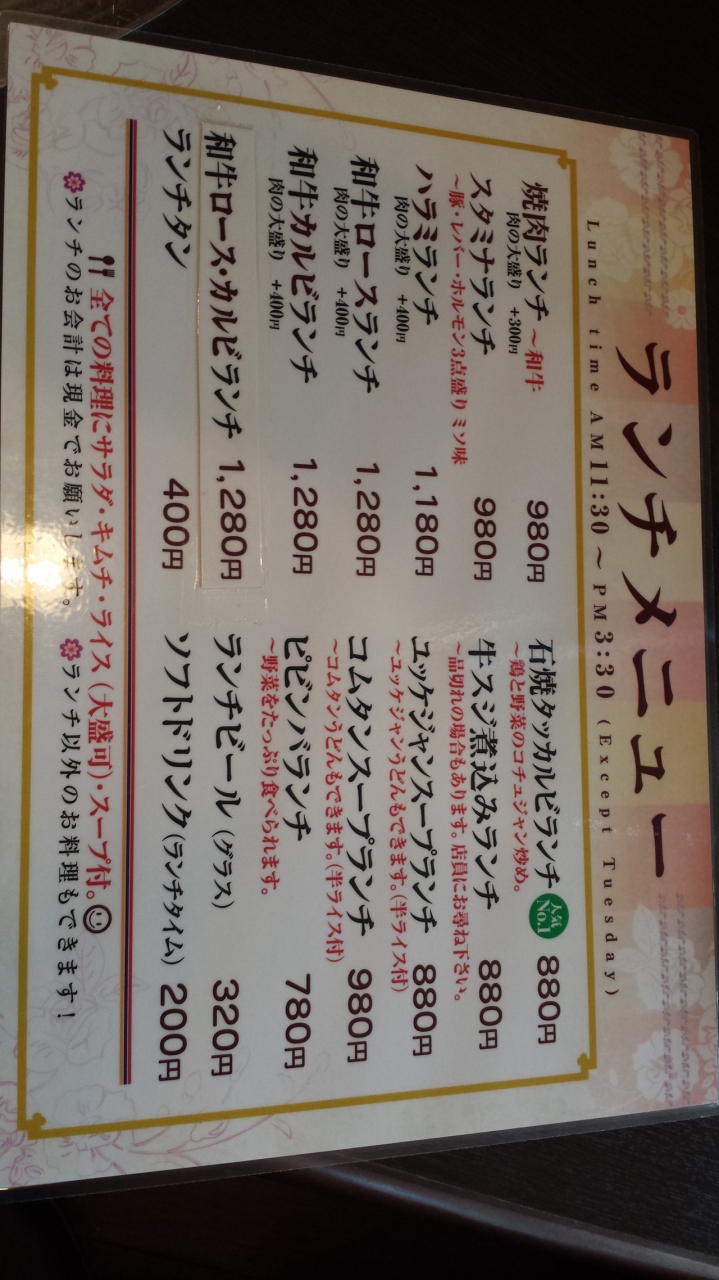 ランチメニュー
Lunch time AM11:30～PM3:30 (Except Tuesday)
焼肉ランチ ～和牛 980円
肉の大盛り +300円
スタミナランチ 980円
～豚・レバー・ホルモン3点盛り ミソ味
ハラミランチ 1,180円
肉の大盛り +400円
和牛ロースランチ 1,280円
肉の大盛り +400円
和牛カルビランチ 1,280円
肉の大盛り +400円
和牛ロース・カルビランチ 1,280円
ランチタン 400円
石焼タッカルビランチ 人気No.1 880円
～鶏と野菜のコチュジャン炒め。
牛スジ煮込みランチ 880円
～品切れの場合もあります。店員にお尋ね下さい。
ユッケジャンスープランチ 880円
～ユッケジャンうどんもできます。(半ライス付)
コムタンスープランチ 980円
～コムタンうどんもできます。(半ライス付)
ピビンバランチ 780円
～野菜をたっぷり食べられます。
ランチビール (グラス) 320円
ソフトドリンク(ランチタイム) 200円
全ての料理にサラダ・キムチ・ライス(大盛可)・スープ付。
ランチのお会計は現金でお願いします。 ランチ以外のお料理もできます！